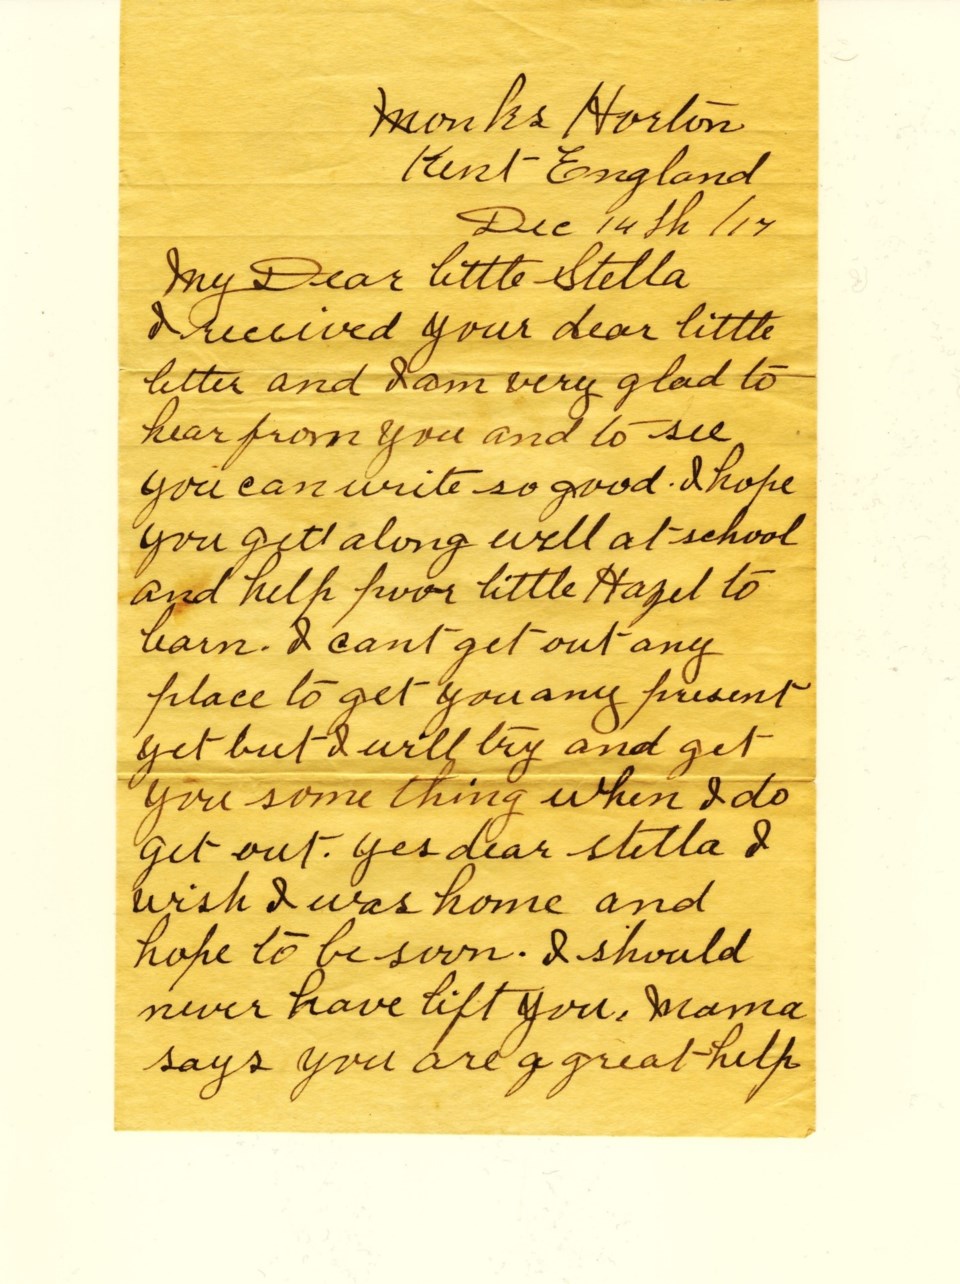 Monks Horton
Kent England
Dec 14th /17
My Dear little Stella
I received your dear little
letter and I am very glad to
hear from you and to see
you can write so good. I hope
you get along well at school
and help poor little Hazel to
larn. I cant get out any
place to get you any present
yet but I will try and get
you some thing when I do
get out. yes dear stella I
wish I was home and
hope to be soon. I should
never have lift you. Mama
says you are a great help